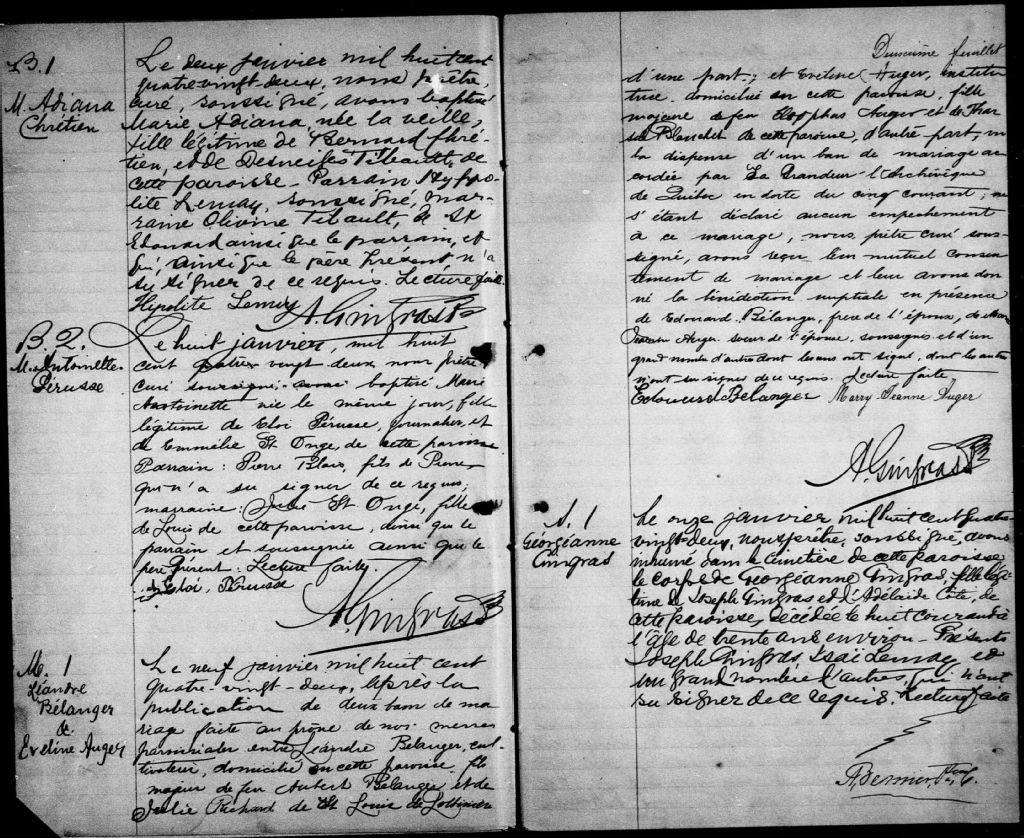 B. 1
M. Adiana
Chrétien
Le deux janvier mil huit cent
quatre-vingt-deux, nous prêtre,
curé, soussigné, avons baptisé
Marie Adiana, née la veille,
fille légitime de Bernard Chré-
tien, et de Desneiges Tibault, de
cette paroisse. Parrain Hyppo-
lite Lemay, soussigné, mar-
raine Olivine Tibault, de St
Edouard ainsi que le parrain, et
qui, ainsi que le père présent n'a
su signer de ce requis. Lecture faite.
Hipolite Lemay
A. Gingras Ptre
B. 2.
M. Antoinette
Pérusse
Le huit janvier, mil huit
cent quatre vingt deux nous prêtre
curé soussigné avons baptisé Marie
Antoinette née le même jour, fille
légitime de Eloi Pérusse, journalier, et
de Emmélie St Onge, de cette paroisse
Parrain: Pierre Blais, fils de Pierre,
qui n'a su signer de ce requis;
marraine: Julie St Onge, fille
de Louis de cette paroisse, ainsi que le
parrain et soussignée ainsi que le
père présent. Lecture faite.
Eloi, Pérusse
A. Gingras Ptre
M. 1
Léandre
Bélanger
&
Eveline Auger
Le neuf janvier mil huit cent
quatre-vingt-deux, après la
publication de deux bans de ma-
riage faite au prône de nos messes
paroissiales entre Léandre Bélanger, cul-
tivateur, domicilié en cette paroisse, fils
majeur de feu Aubert Bélanger et de
Julie Richard de St Louis de Lotbinière
Deuxième feuillet
d'une part; et Eveline Auger, institu-
trice domiciliée en cette paroisse, fille
majeure de feu Eléophas Auger et de Thar-
sile Blanchet de cette paroisse, d'autre part, vu
la dispense d'un ban de mariage ac-
cordée par Sa Grandeur l'Archevêque
de Québec en date du cinq courant; ne
s'étant déclaré aucun empêchement
à ce mariage, nous, prêtre curé sous-
signé, avons reçu leur mutuel consen-
tement de mariage et leur avons don-
né la bénédiction nuptiale en présence
de Edouard Bélanger, frère de l'époux, de Marie
Jeanne Auger soeur de l'épouse, soussignés et d'un
grand nombre d'autres dont les uns ont signé, dont les autres
n'ont su signer de ce requis. Lecture faite
Edouard Bélanger Marry Jeanne Auger
A. Gingras Ptre
S. 1
Georgéanne
Gingras
Le onze janvier mil huit cent quatre-
vingt-deux, nous prêtre, soussigné, avons
inhumé dans le cimetière de cette paroisse,
le corps de Georgéanne Gingras, fille légi-
time de Joseph Gingras et d'Adélaïde Côté, de
cette paroisse, décédée le huit courant à
l'âge de trente ans environ. Présents
Joseph Gingras, Isaï Lemay et
un grand nombre d'autres, qui n'ont
su signer de ce requis. Lecture faite
A. Bernier, Ptre